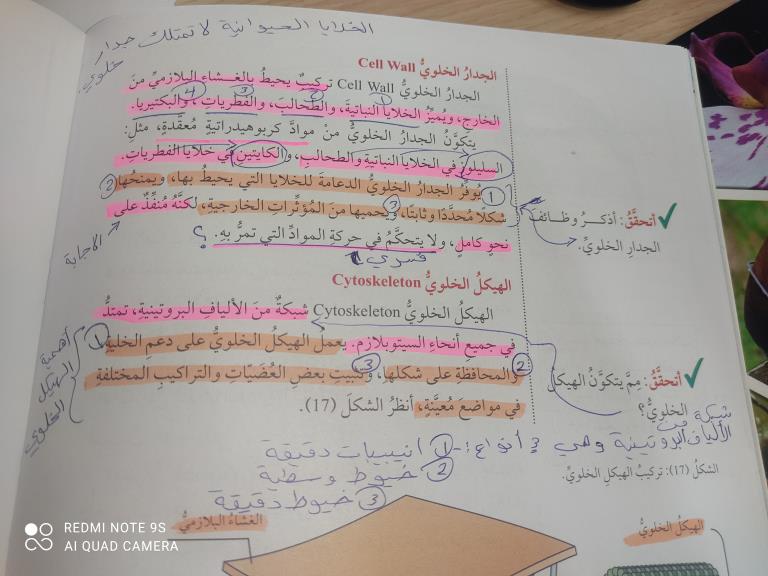 الخلايا الحيوانية لا تمتلك جدار
خلوي.
الجدارُ الخلويُّ Cell Wall
الجدارُ الخلويُّ Cell Wall تركيبٌ يحيطُ بالغشاءِ البلازميِّ منَ
الخارجِ، ويُميِّزُ الخلايا النباتيةَ، والطحالبَ، والفطرياتِ، والبكتيريا.
يتكوَّنُ الجدارُ الخلويُّ منْ موادَّ كربوهيدراتيةٍ مُعقَّدةٍ، مثلِ:
السليلوزِ في الخلايا النباتيةِ والطحالبِ، والكايتينِ في خلايا الفطرياتِ.
يُوفِّرُ الجدارُ الخلويُّ الدعامةَ للخلايا التي يحيطُ بها، ويمنحُها
شكلًا مُحدَّدًا وثابتًا، ويحميها منَ المُؤثِّراتِ الخارجيةِ، لكنَّهُ مُنفِذٌ على
نحوٍ كاملٍ، ولا يتحكَّمُ في حركةِ الموادِّ التي تمرُّ بهِ. ؟
فسري
1
2
3
4
1
2
3
الاجابة
✓ أتحقَّقُ: أذكرُ وظائفَ
الجدارِ الخلويِّ.
الهيكلُ الخلويُّ Cytoskeleton
الهيكلُ الخلويُّ Cytoskeleton شبكةٌ منَ الأليافِ البروتينيةِ، تمتدُّ
في جميعِ أنحاءِ السيتوبلازمِ. يعملُ الهيكلُ الخلويُّ على دعمِ الخليةِ
والمحافظةِ على شكلِها، وتثبيتِ بعضِ العُضَيّاتِ والتراكيبِ المختلفةِ
في مواضعَ مُعيَّنةٍ، أنظرُ الشكلَ (17).
1
2
3
أهمية
الهيكل
الخلوي
✓ أتحقَّقُ: مِمَّ يتكوَّنُ الهيكلُ
الخلويُّ؟
شبكة من
الألياف البروتينية وهي 3 أنواع :- 1 انيبيبات دقيقة
2 خيوط وسطية
3 خيوط دقيقة
الشكلُ (17): تركيبُ الهيكلِ الخلويِّ.
الهيكلُ الخلويُّ
الغشاءُ البلازميُّ
REDMI NOTE 9S
AI QUAD CAMERA